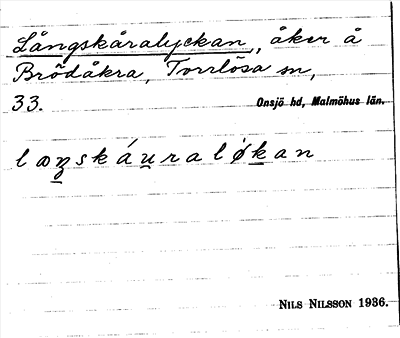 Långskåralyckan, åker å
Brödåkra, Torrlösa sn,
33. Onsjö hd, Malmöhus län.
laŋskáu̯raløkan
NILS NILSSON 1936.